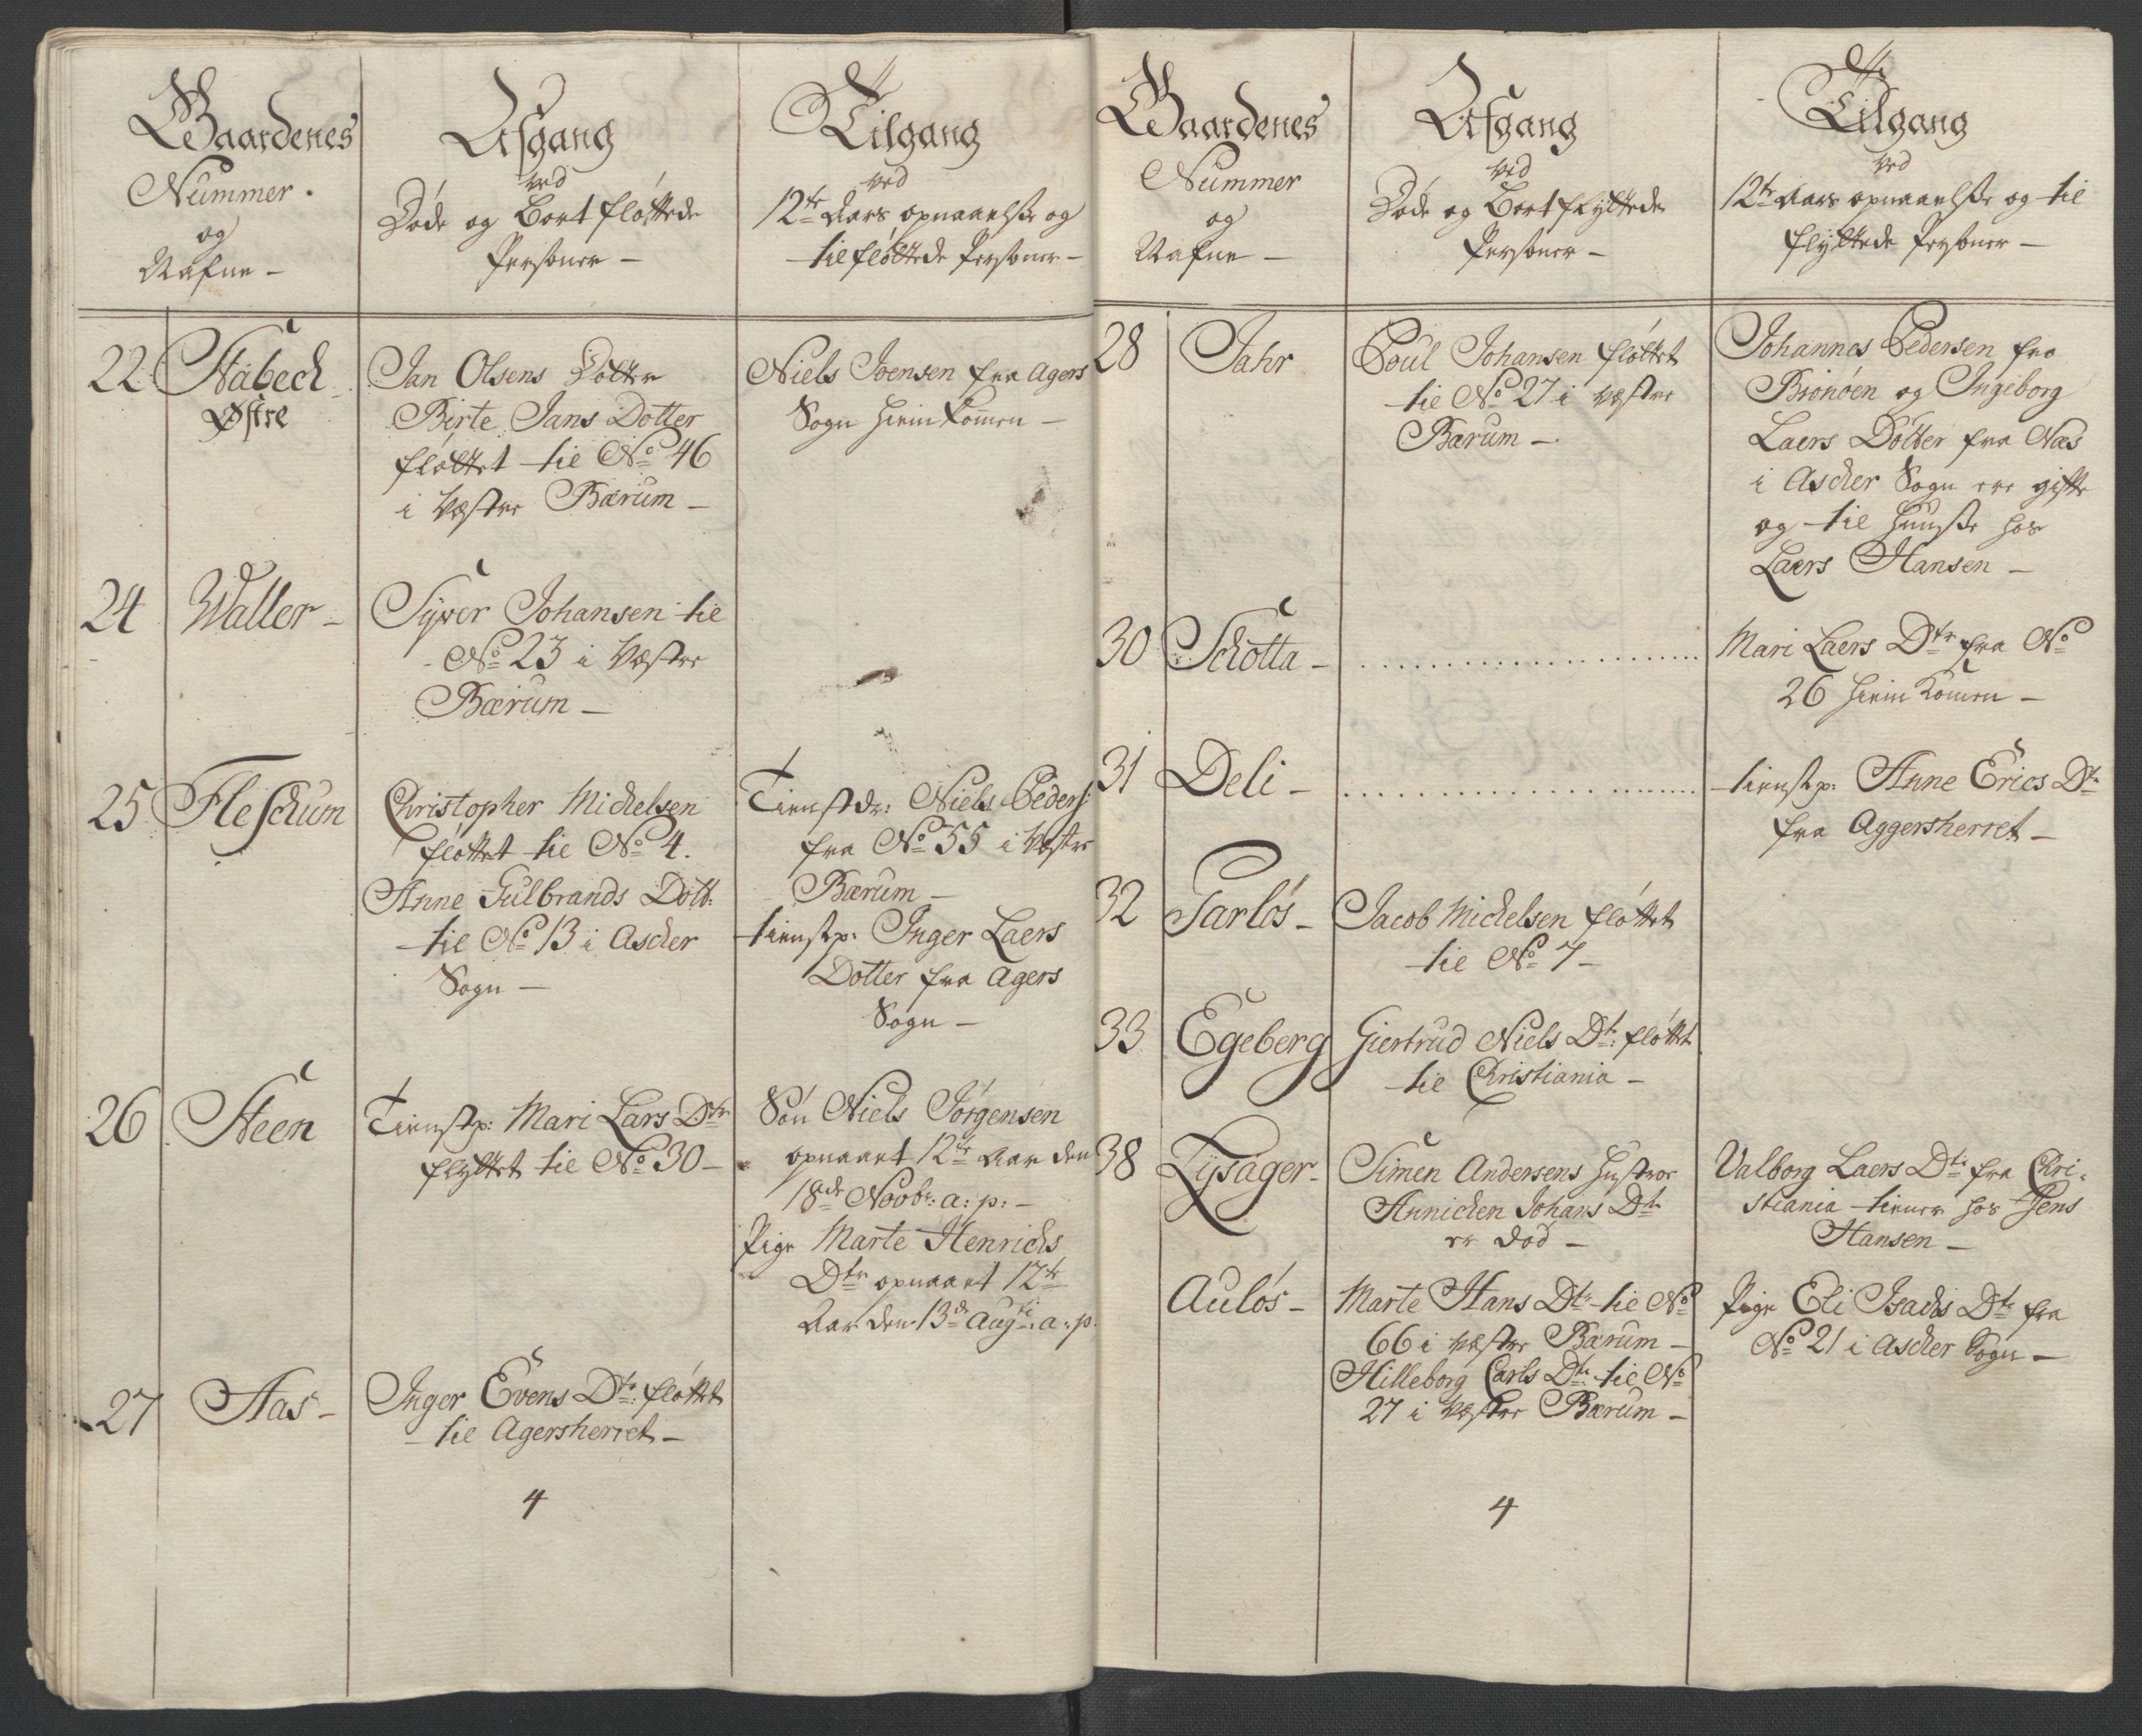 Gaardenes
Nummer.
og
Nafne –
Afgang
ved
Døde og Bort fløttede
Personer –
Tilgang
ved
12te Aars opnaaelsse og
tilfløttede Personer –
22 Stabech
Østre
Jan Olsens Dotter
Birte Jans Dotter
fløttet til No 46
i Vestre Bærum –
Niels Joensen fra Agers
Sogn hiemkommen –
24 Waller –
Syver Johansen til
No 23 i Vestre
Bærum –
25 Fleschum
Christopher Michelsen
fløttet til No 4.
Anne Gulbrands Dott:
til No 13 i Ascher
Sogn –
Tienstdr: Niels Peders:
fra No 55 i Vestre
Bærum –
tienstp: Inger Laers
Dotter fra Agers
Sogn –
26 Steen
Tienstp: Mari Lars Dtr
flyttet til No 30 –
Søn Niels Jørgensen
opnaaet 12te Aar den
18de Novbr: a: p: –
Pige Marte Henrichs
Dtr opnaaet 12te
Aar den 13de Augti: a: p.
27 Aas –
Inger Evens Dtr: fløttet
til Agersherret –
4
Gaardenes
Nummer
og
Nafne –
Afgang
ved
Døde og Bortflyttede
Personer –
Tilgang
ved
12te Aars opnaaelsse og til
flyttede Personer –
28 Jahr
Poul Johansen fløttet
til No 27 i Vestre
Bærum –
Johannes Pedersen fra
Brønøen og Ingeborg
Laers Dotter fra Næs
i Ascher Sogn ere gifte
og til huusse hos
Laers Hansen –
30 Schotta –
Mari Laers Dtr fra No
26 hiem kommen –
31 Deli –
tienstp: Anne Erics Dtr
fra Aggersherret –
32 Garløs –
Jacob Michelsen fløttet
til No 7 –
33 Egeberg
Giertrud Niels Dtr: fløttet
til Christiania –
38 Lysager –
Simen Andersens Hustroe
Annichen Johans Dtr
er død –
Valborg Laers Dtr: fra Chri-
stiania tiener hos Jens
Hansen –
Auløs –
Marte Hans Dtr til No
66 i Vestre Bærum –
Hilleborg Carls Dtr: til No
27 i Vestre Bærum –
Pige Eli Isachs Dtr fra
No 21 i Ascher Sogn –
4